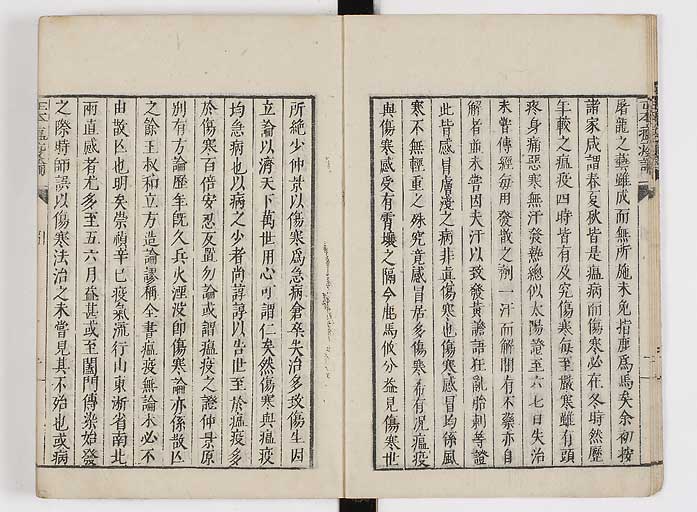 屠龍之藝雖成而無所施未免指鹿為馬矣余初按
諸家咸謂春夏秋皆是瘟病而傷寒必在冬時然歷
年較之瘟疫四時皆有及究傷寒每至嚴寒雖有頭
疼身痛惡寒無汗發熱總似太陽證至六七日失治
未嘗傳經每用發散之劑一汗而解間有不藥亦自
解者並未嘗因失汗以致發黃譫語狂亂胎刺等證
此皆感冒膚淺之病非真傷寒也傷寒感冒均係風
寒不無輕重之殊究竟感冒居多傷寒希有况瘟疫
與傷寒感受有霄壤之隔今鹿馬攸分益見傷寒世
所絶少仲景以傷寒為急病倉卒失治多致傷生因
立論以濟天下萬世用心可謂仁矣然傷寒與瘟疫
均急病也以病之少者尚諄諄以告世至於瘟疫多
於傷寒百倍安忍反置勿論或謂瘟疫之證仲景原
別有方論歷年既久兵火湮沒即傷寒論亦係散亡
之餘王叔和立方造論謬稱全書瘟疫無論未必不
由散亡也明矣崇禎辛巳疫氣流行山東浙省南北
兩直感者尤多至五六月益甚或至闔門傳染始發
之際時師誤以傷寒法治之未嘗見其不殆也或病